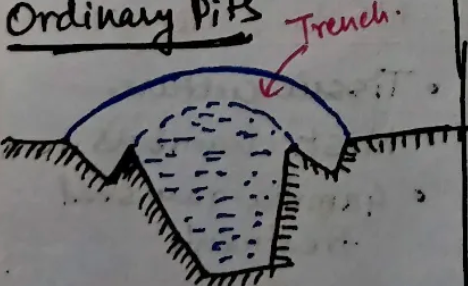 Ordinary Pits
Trench.